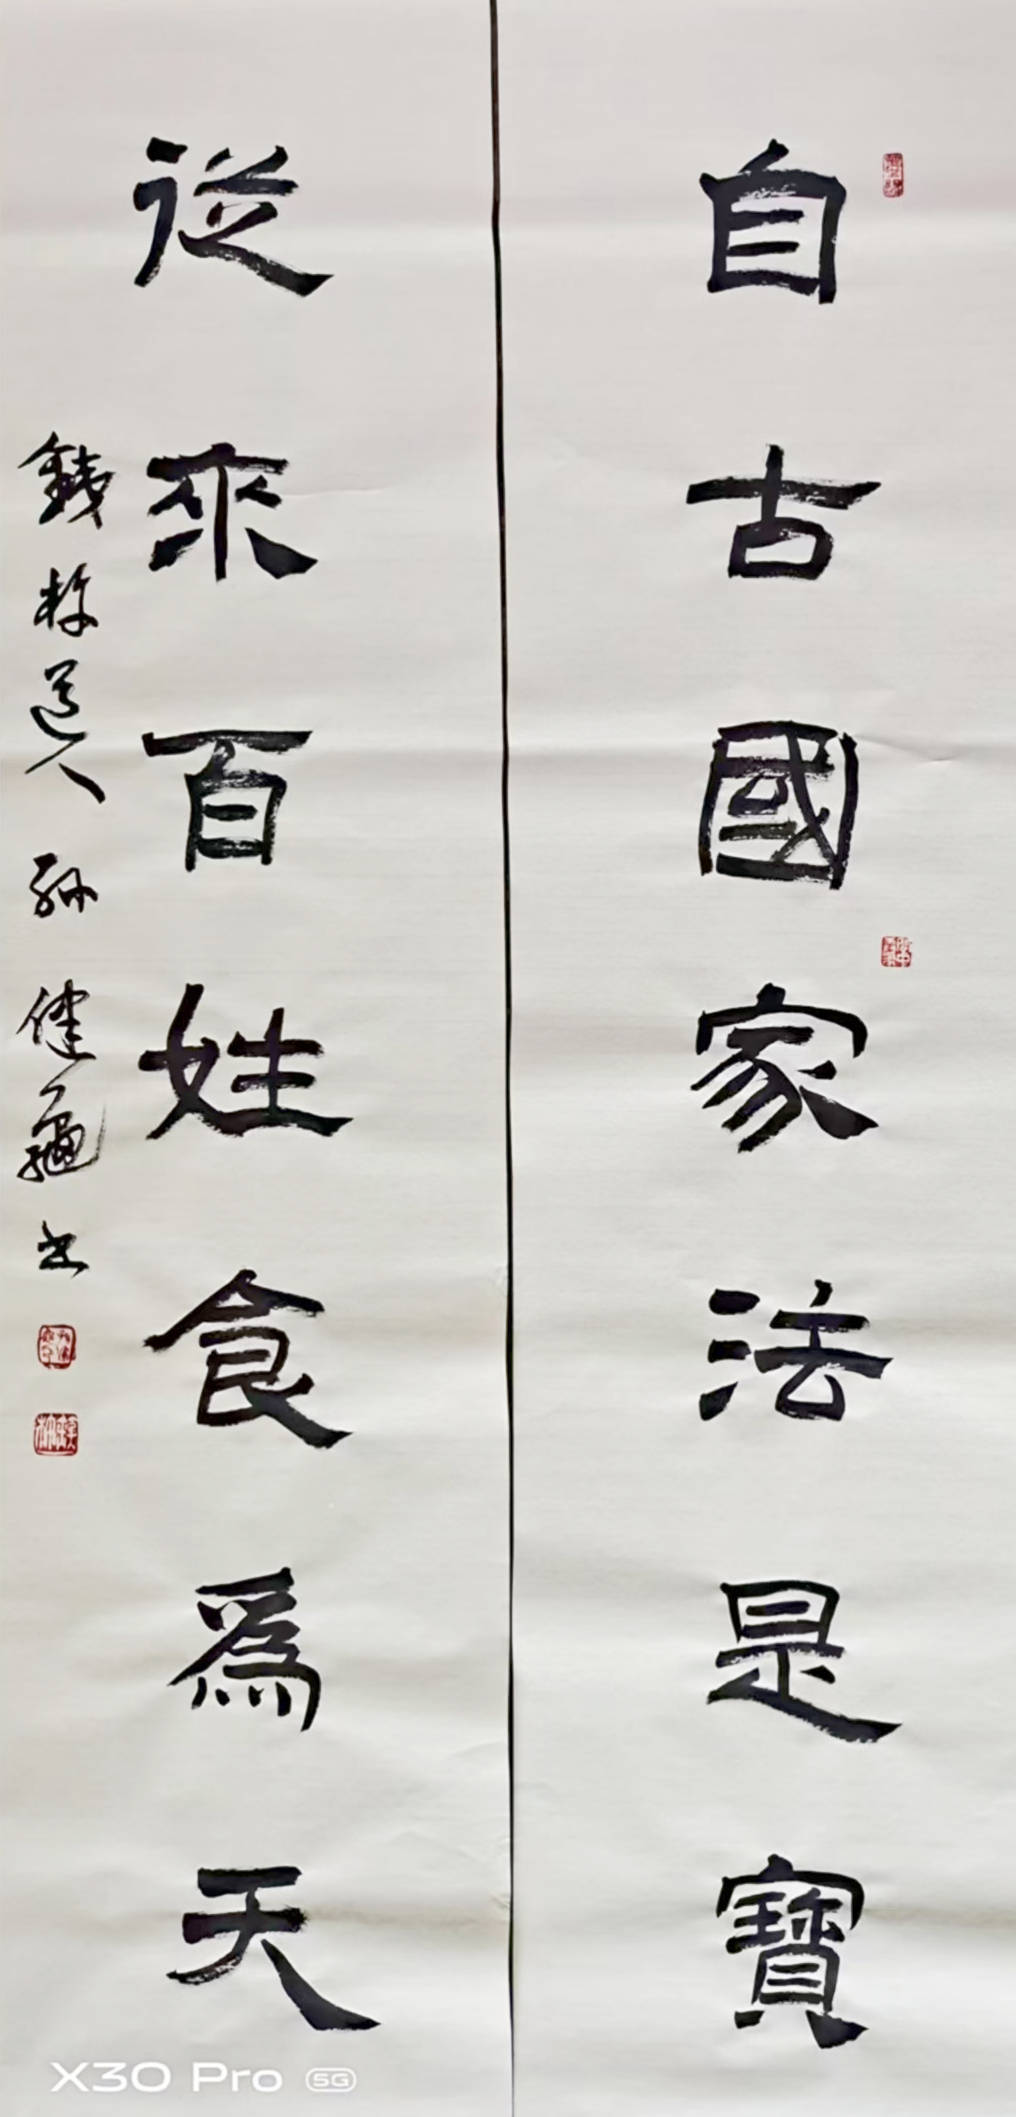 自古國家法是寶
從來百姓食為天
鐵杖道人 孫健龜书
X30 Pro 5G